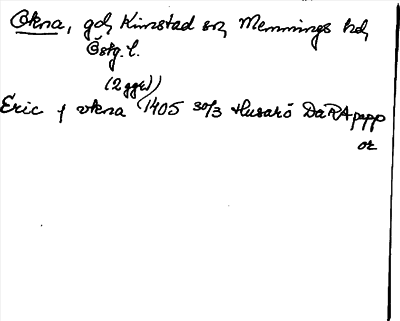 Okna, gd, Kimstad sn, Memmings hd,
Östg. l.
(2 ggr)
Eric j okna 1405 30/3 Husarö DaRApapp
or